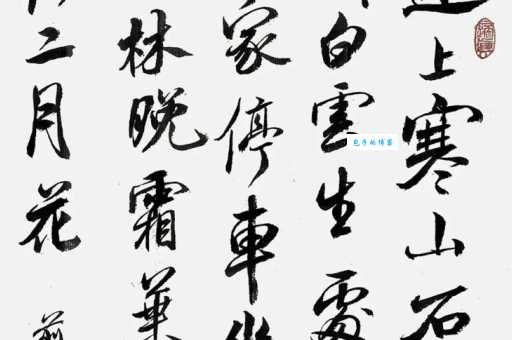 上寒山石
白雲生處
家停車
林晚霜葉
二月花
包子的博客